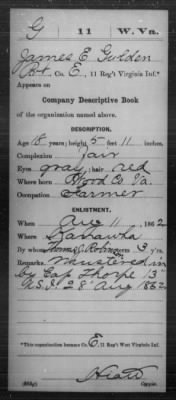 G | 11 | W. Va.
James E Gulden
Pvt. Co. E, 11 Reg't Virginia Inf.*
Appears on
Company Descriptive Book
of the organization named above.
DESCRIPTION.
Age 18 years; height 5 feet 11 inches.
Complexion fair
Eyes gray; hair red
Where born Wood Co Va.
Occupation Farmer
ENLISTMENT.
When Aug 11, 1862.
Where Kanawha
By whom Thomas C. ; term 3 y'rs.
Remarks: Mustered in
by Cap Thorpe 13"
U.S.I. 28" Aug 1862
*This organization became Co. E, 11 Reg't West Virginia Inf.
Copyist.